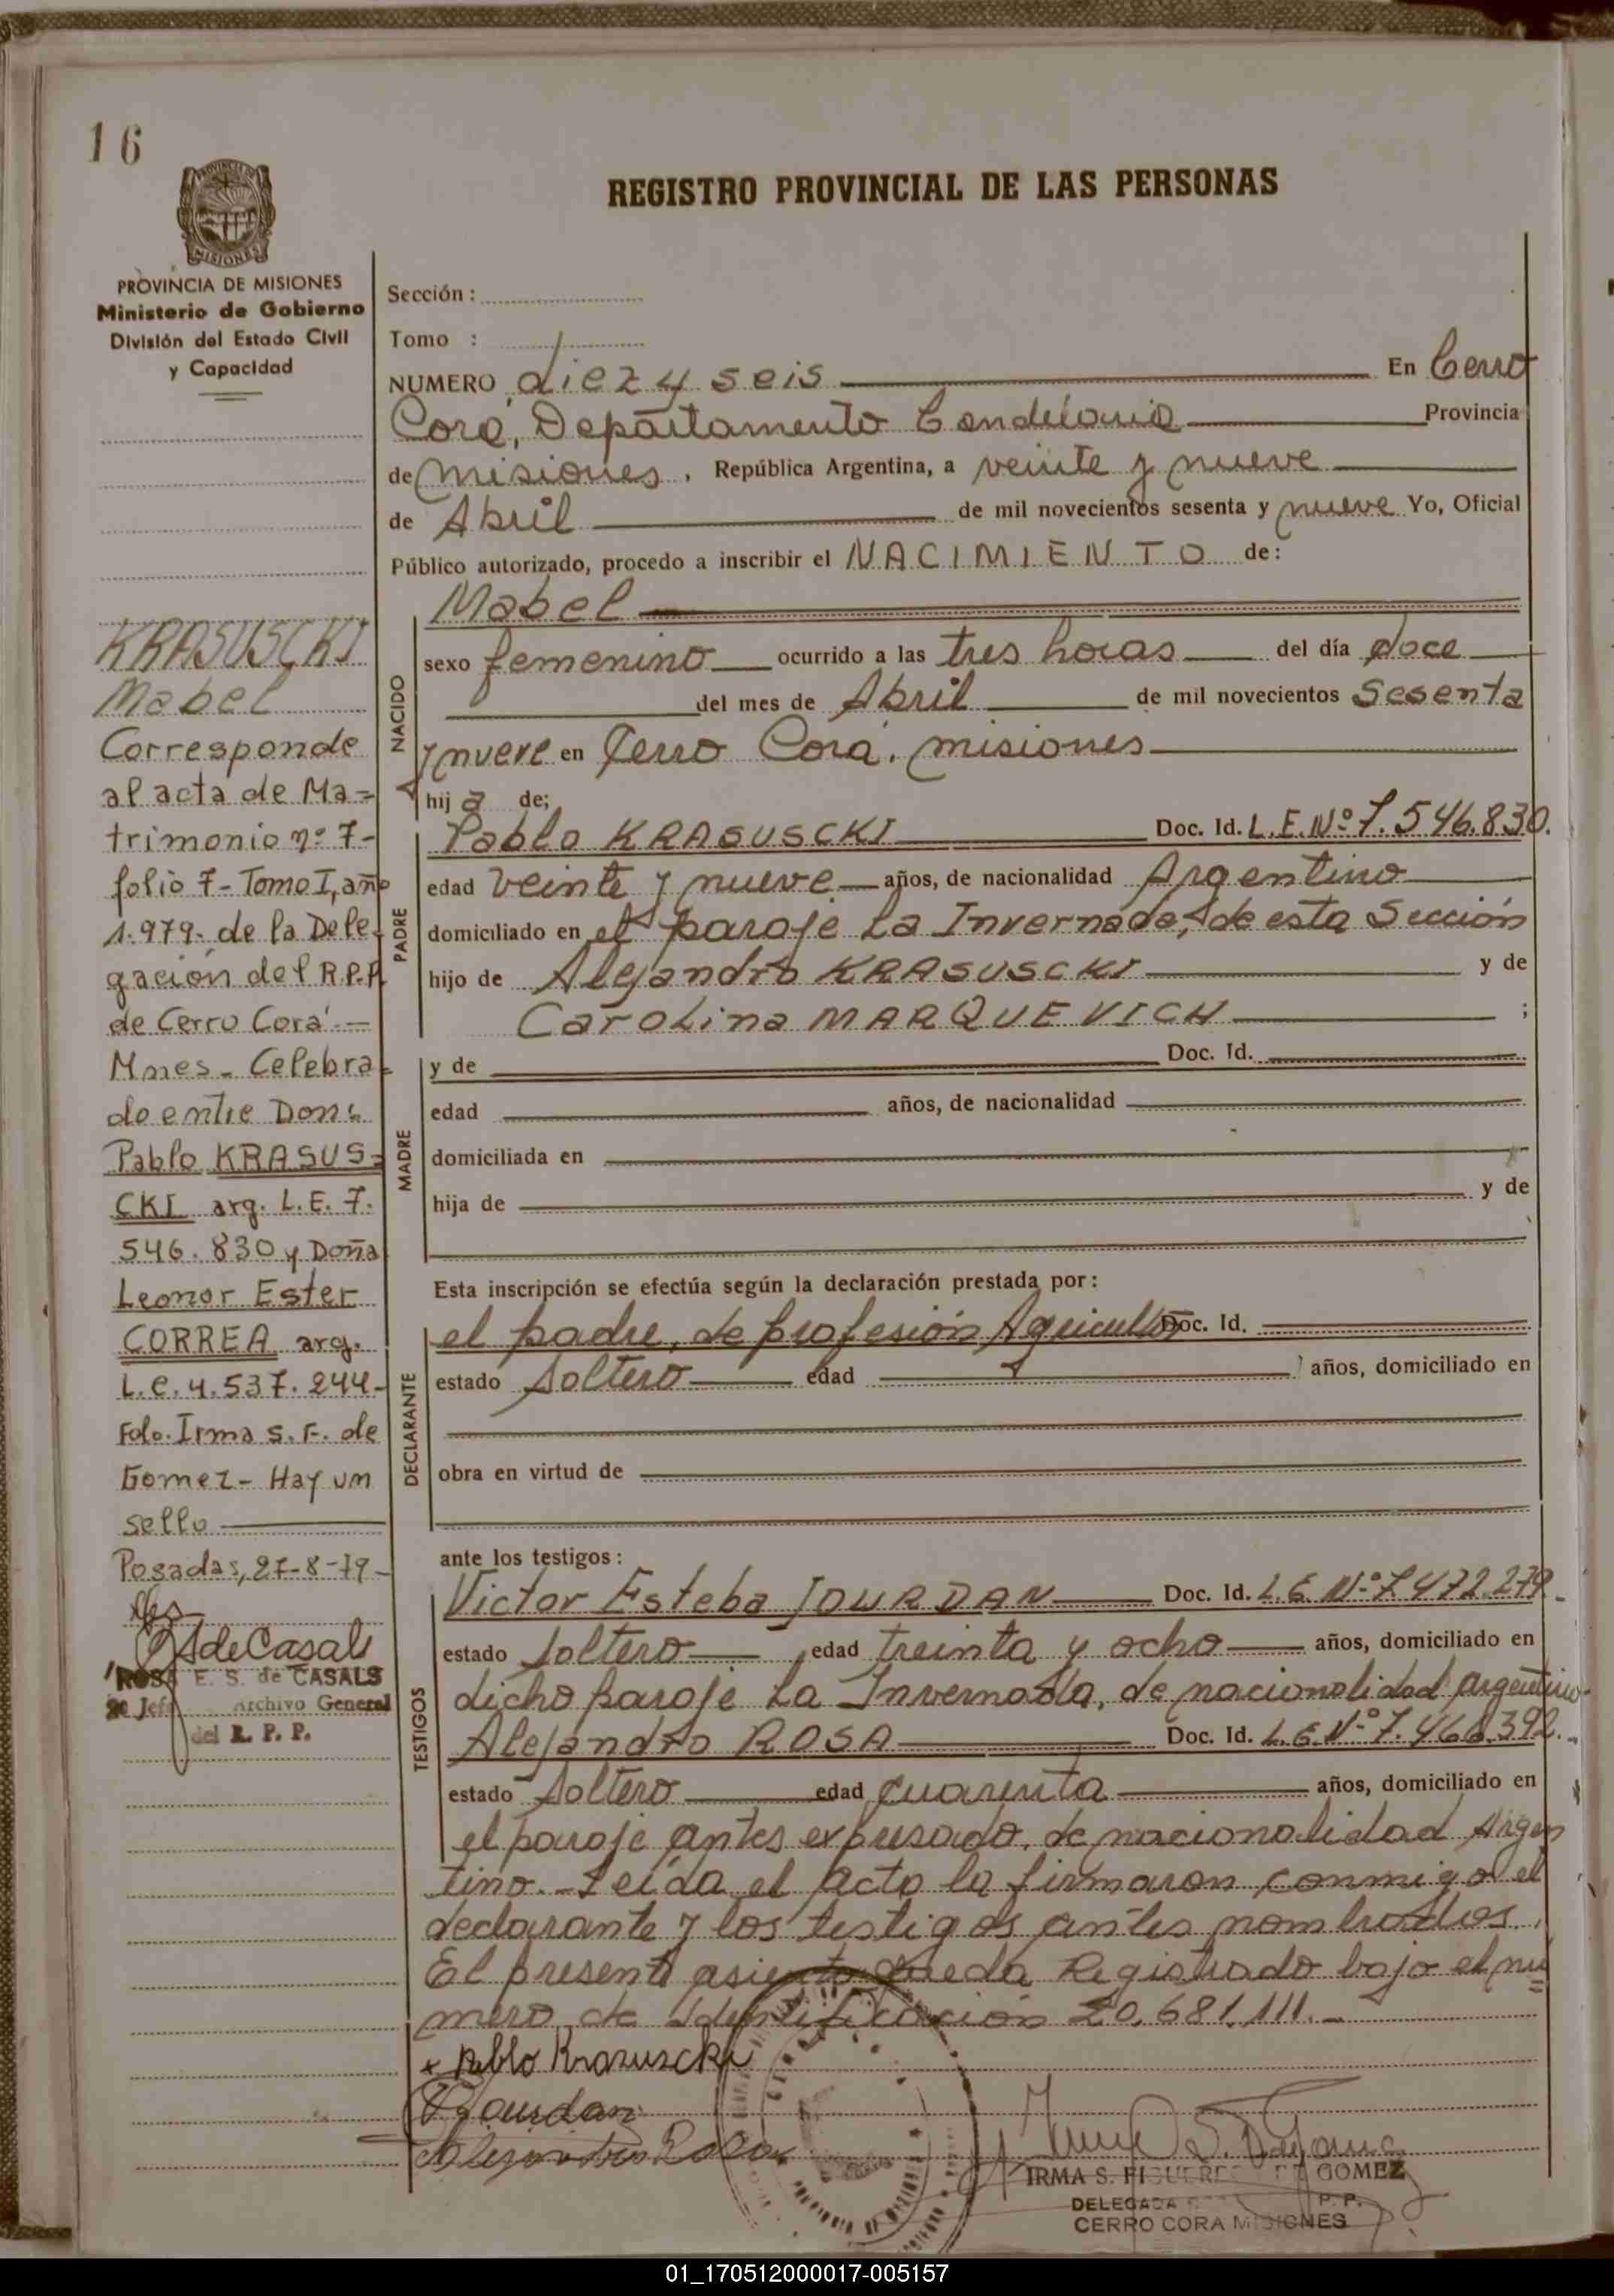 16
REGISTRO PROVINCIAL DE LAS PERSONAS
PROVINCIA DE MISIONES
Ministerio de Gobierno
División del Estado Civil
y Capacidad
KRASUSCKI
Mabel
Corresponde
al acta de Ma=
trimonio nº 7-
folio 7- Tomo I, año
1.979- de la Dele-
gación del R.P.P.
de Cerro Corá.—
Mnes- Celebra-
do entre Don:
Pablo KRASUS=
CKI arg. L.E. 7.
546.830 y Doña
Leonor Ester
CORREA arg.
L.C. 4.537.244-
Fdo. Irma S. F. de
Gomez- Hay un
sello
Posadas, 27-8-79-
ROSA E. S. de CASALS
Archivo General
del R. P. P.
Sección :
Tomo :
NUMERO diez y seis En Cerro
Corá, Departamento Candelaria Provincia
de Misiones, República Argentina, a veinte y nueve
de Abril de mil novecientos sesenta y nueve Yo, Oficial
Público autorizado, procedo a inscribir el NACIMIENTO de:
NACIDO
Mabel
sexo femenino ocurrido a las tres horas del día doce
del mes de Abril de mil novecientos sesenta
y nueve en Cerro Corá, Misiones
hija de;
PADRE
Pablo KRASUSCKI Doc. Id. L.E. Nº 7.546.830.
edad veinte y nueve años, de nacionalidad Argentino
domiciliado en el paraje La Invernada, de esta Sección
hijo de Alejandro KRASUSCKI y de
Carolina MARQUEVICH ;
MADRE
y de Doc. Id.
edad años, de nacionalidad
domiciliada en
hija de y de
Esta inscripción se efectúa según la declaración prestada por :
DECLARANTE
el padre, de profesión Agricultor Doc. Id.
estado soltero edad años, domiciliado en
obra en virtud de
ante los testigos :
TESTIGOS
Victor Esteba JOURDAN Doc. Id. L.E. Nº 7.472.279.
estado soltero edad treinta y ocho años, domiciliado en
dicho paraje La Invernada, de nacionalidad argentino.
Alejandro ROSA Doc. Id. L.E. Nº 7.466.392.
estado soltero edad cuarenta años, domiciliado en
el paraje antes expresado, de nacionalidad Argen
tino.- Leída el acta la firmaron conmigo el
declarante y los testigos antes nombrados.
El presente asiento queda Registrado bajo el nú=
mero de Identificación 20.681.111.-
+ Pablo Krasuscki
Jourdan
Alejandro Rosa
IRMA S. FIGUEREDO DE GOMEZ
DELEGADA P. P.
CERRO CORA MISIONES
01_170512000017-005157